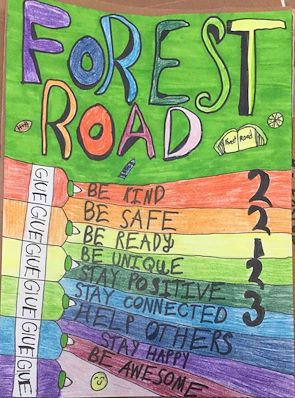 FOREST
ROAD
Forest Road
BE KIND
BE SAFE
BE READY
BE UNIQUE
STAY POSITIVE
STAY CONNECTED
HELP OTHERS
STAY HAPPY
BE AWESOME
22-23
GLUE GLUE GLUE GLUE GLUE GLUE